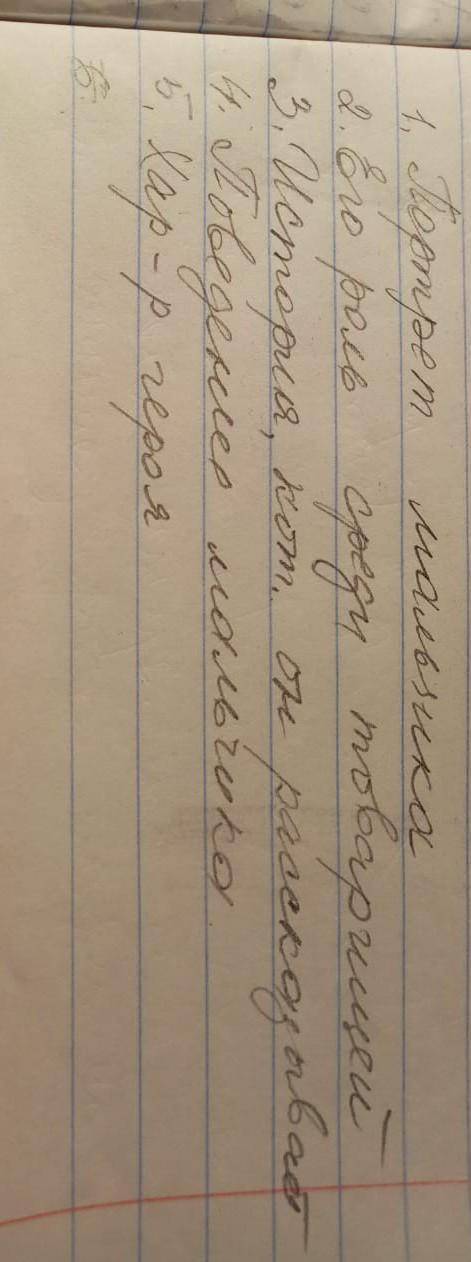 1. Портрет мальчика
2. Его роль среди товарищей
3. История, кот. он рассказывает
4. Поведение мальчика.
5. Хар-р героя
6.